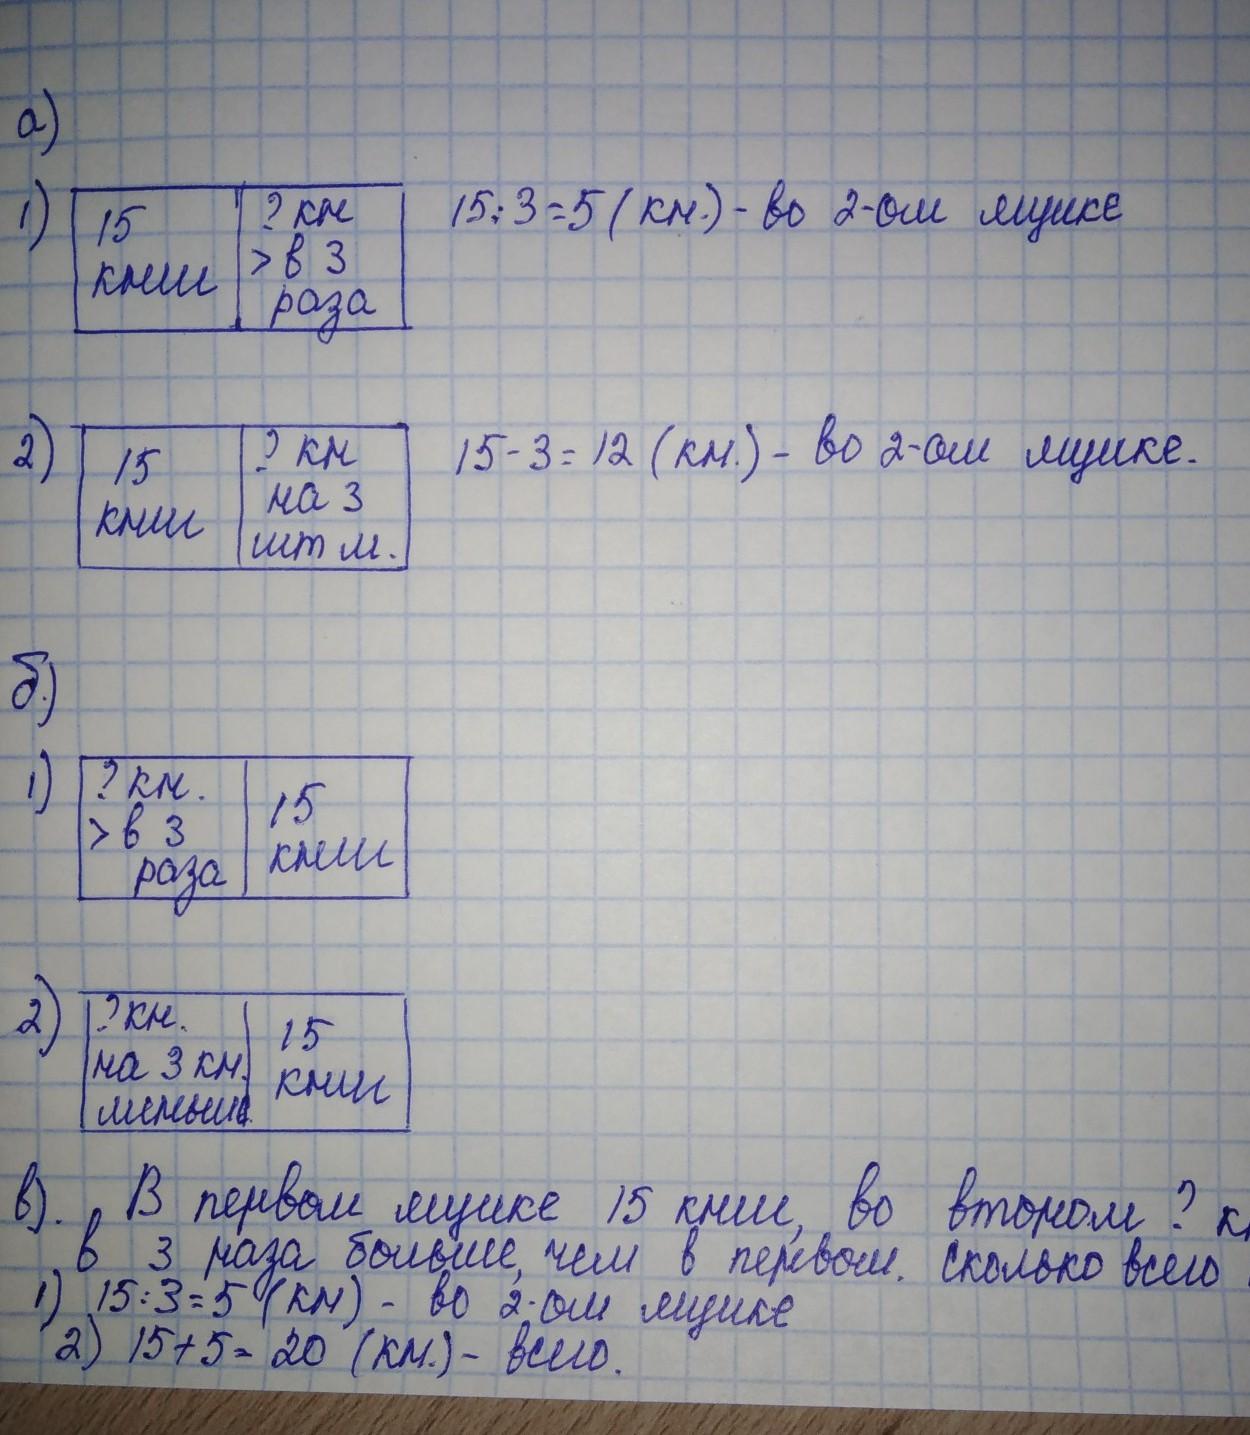 а)
1) 15 книг ? кн > в 3 раза 15:3=5 (кн.) - во 2-ом ящике
2) 15 книг ? кн на 3 шт м. 15-3=12 (кн.) - во 2-ом ящике.
б)
1) ? кн. > в 3 раза 15 книг
2) ? кн. на 3 кн. меньше 15 книг
в). В первом ящике 15 книг, во втором ? кн
в 3 раза больше, чем в первом. Сколько всего
1) 15:3=5 (кн) - во 2-ом ящике
2) 15+5= 20 (кн.) - всего.